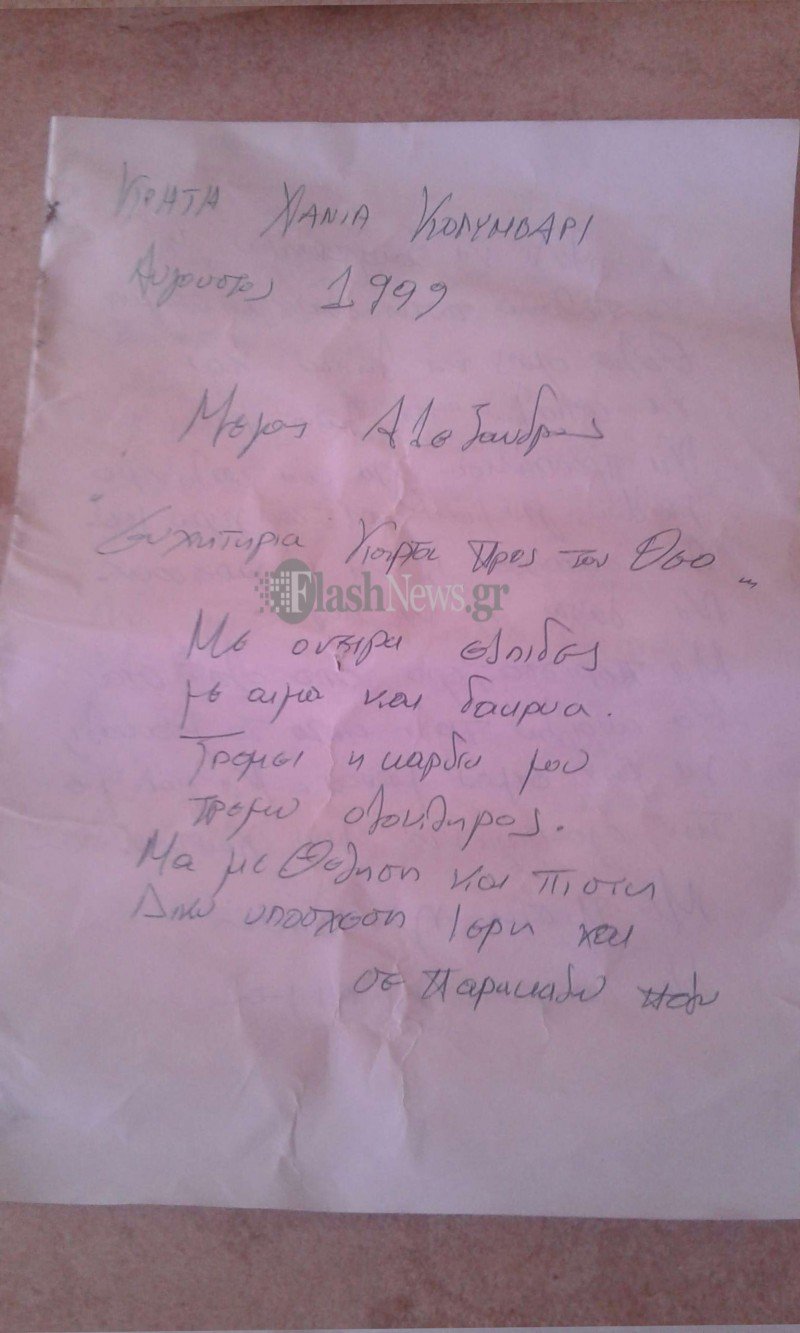 ΚΡΗΤΗ ΧΑΝΙΑ ΚΟΛΥΜΒΑΡΙ
Αυγουστος 1999
Μεγας Αλεξανδρος
Ευχητηρια Καρτα Προς τον Θεο ...
FlashNews.gr
Με ονειρα ελπιδες
με αιμα και δακρυα.
Τρεμει η καρδια μου
τρεμω ολοκληρος.
Μα με Θεληση και πιστη
Δινω υποσχεση Ιερη και
σε παρακαλω πολυ